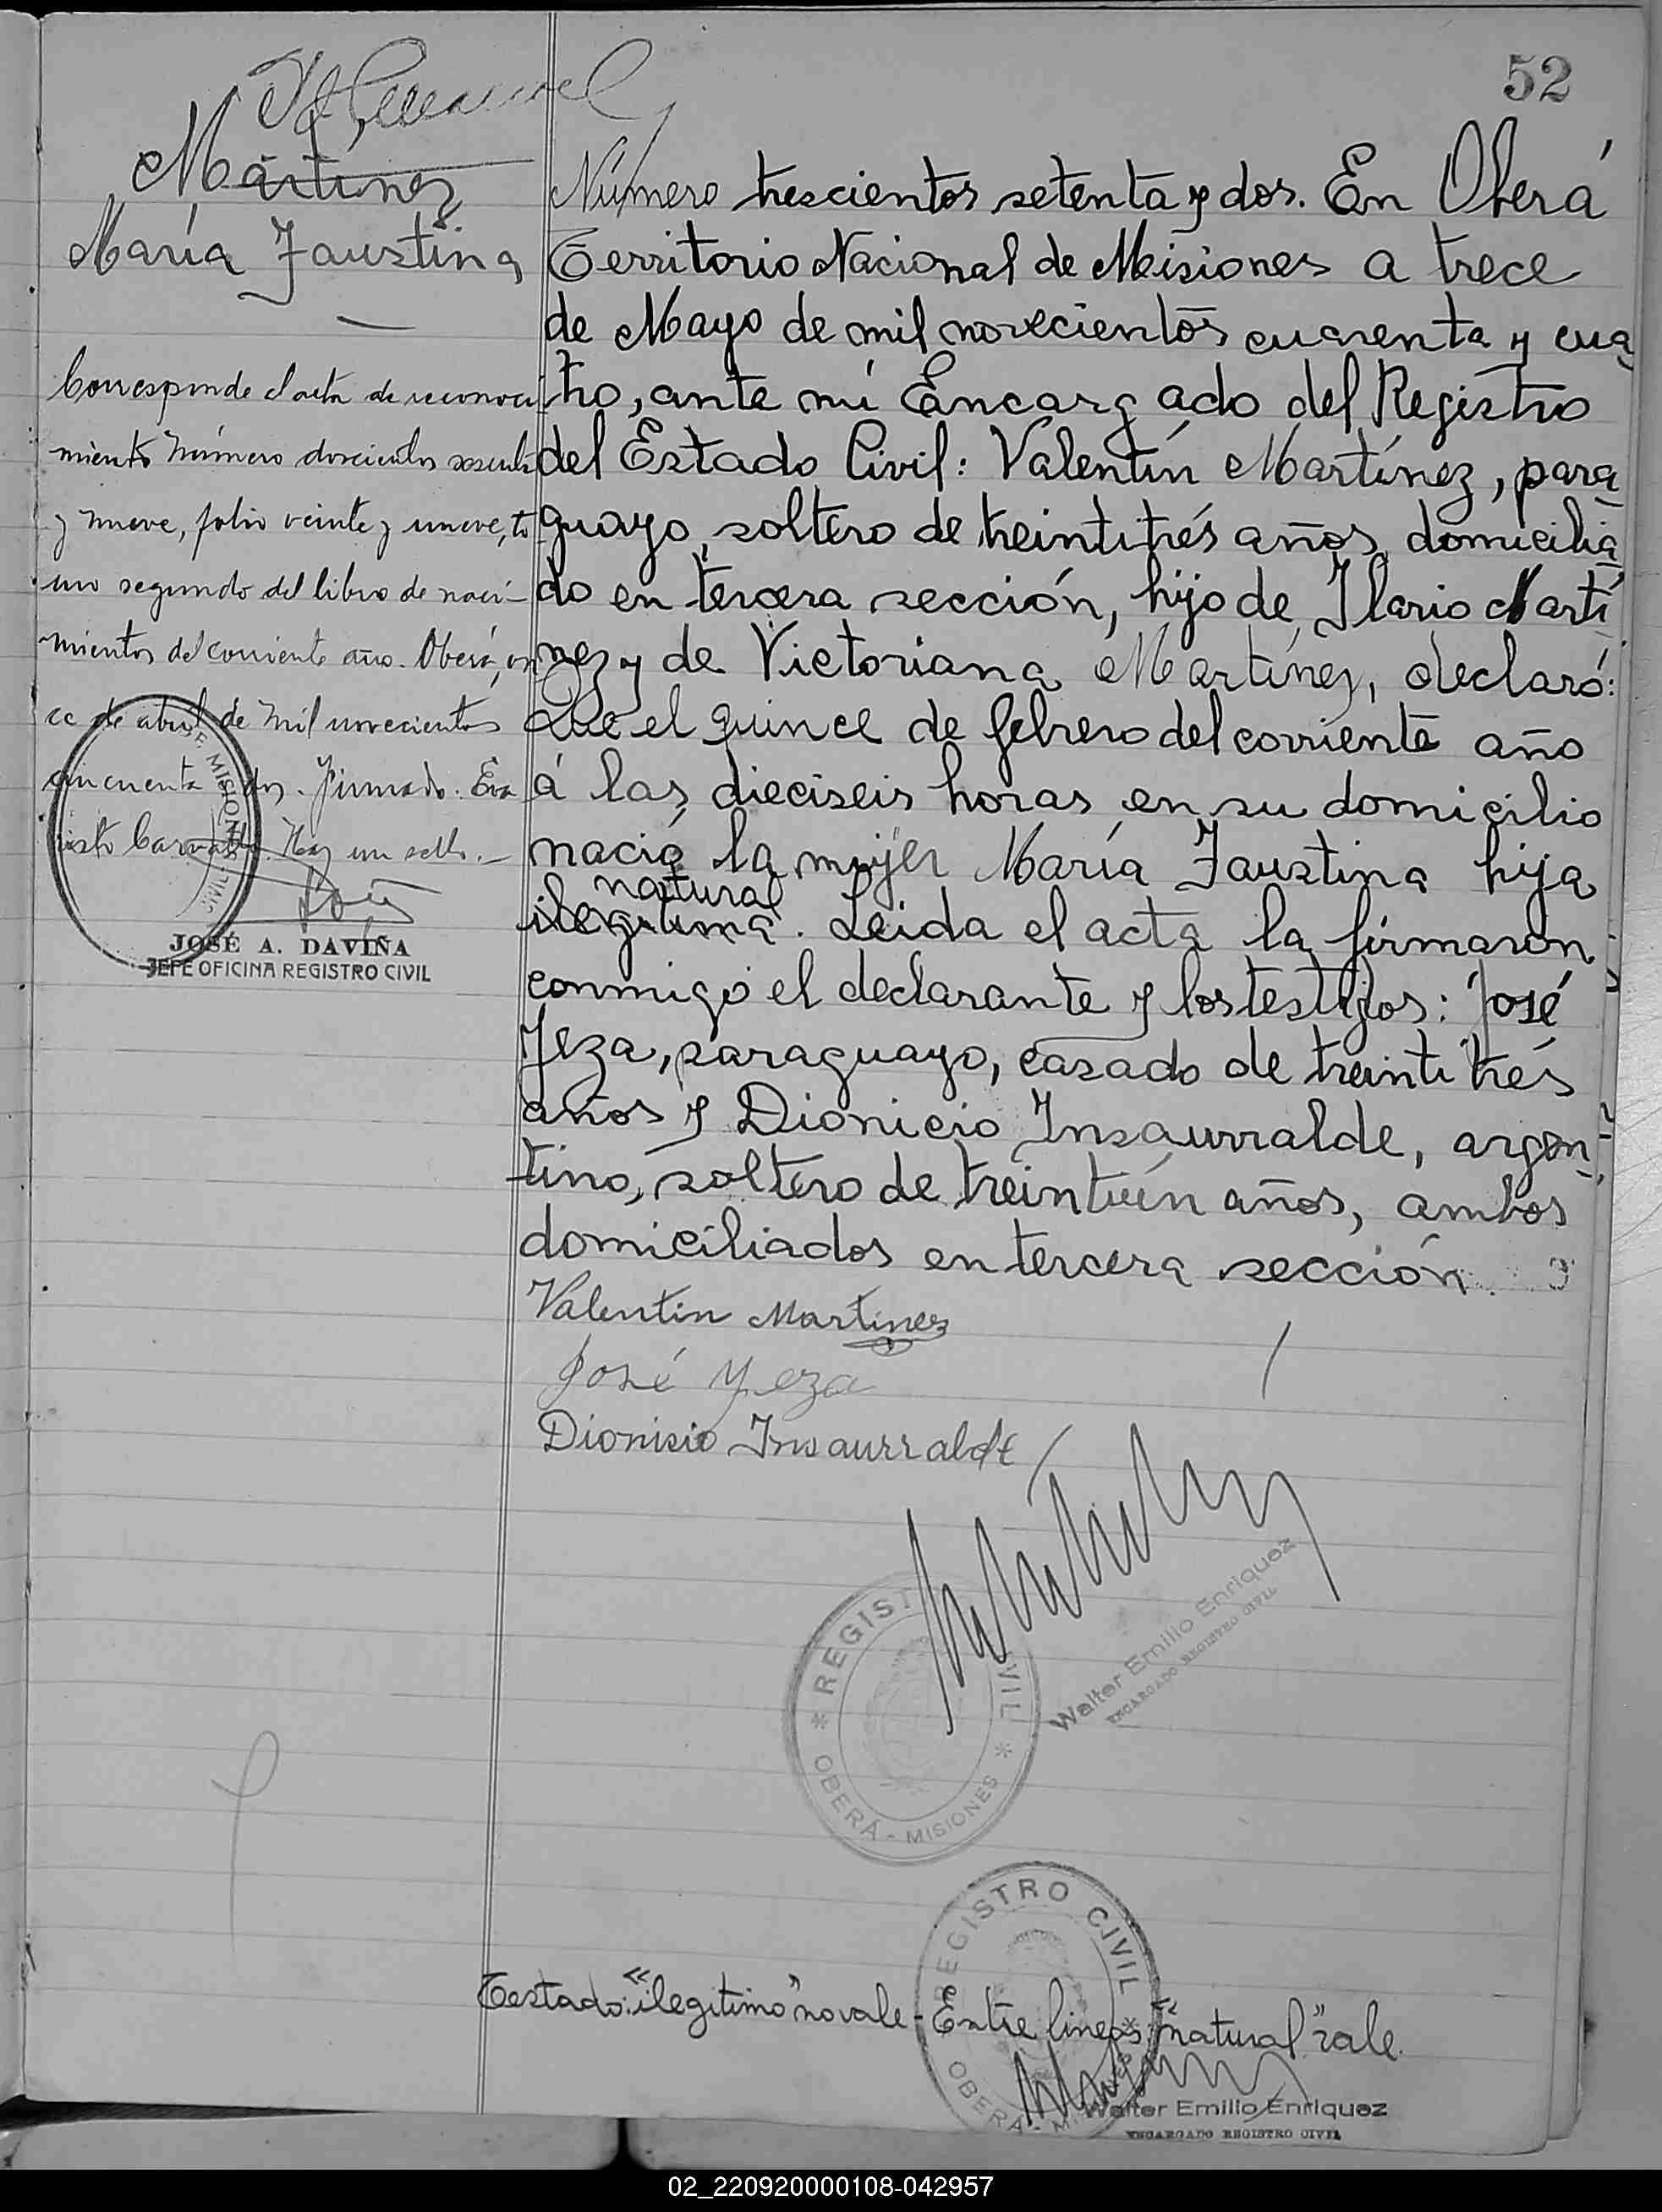 52
Martínez
María Faustina
Corresponde el acta de reconoci
miento número doscientos sesenta
y nueve, folio veinte y nueve, to
mo segundo del libro de naci-
mientos del corriente año. Oberá, on
ce de abril de mil novecientos
cincuenta y dos. Firmado. Eva
risto Carvallo. Hay un sello.-
JOSÉ A. DAVIÑA
JEFE OFICINA REGISTRO CIVIL
Número trescientos setenta y dos. En Oberá
Territorio Nacional de Misiones a trece
de Mayo de mil novecientos cuarenta y cua
tro, ante mí Encargado del Registro
del Estado Civil: Valentín Martínez, para
guayo, soltero de treintitrés años, domicilia
do en tercera sección, hijo de Ilario Martí
nez y de Victoriana Martínez, declaró:
Que el quince de febrero del corriente año
á las dieciseis horas en su domicilio
nació la mujer María Faustina hija
natural
ilegitima. Leida el acta la firmaron
conmigo el declarante y los testigos: José
Yeza, paraguayo, casado de treinti trés
años y Dionicio Insaurralde, argen-
tino, soltero de treintiún años, ambos
domiciliados en tercera sección
Valentin Martinez
José Yeza
Dionisio Insaurralde
REGIST VIL
OBERÁ - MISIONES
Walter Emilio Enriquez
ENCARGADO REGISTRO CIVIL
REGISTRO CIVIL
OBERÁ - M
Testado: "ilegitimo" no vale - Entre lineas: "natural" vale.
Walter Emilio Enriquez
ENCARGADO REGISTRO CIVIL
02_220920000108-042957